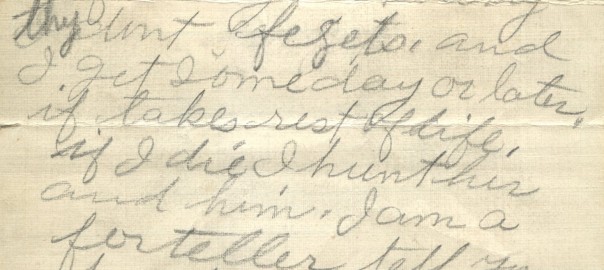 thy dont fegets, and
I get someday or later.
if takes rest of life,
if I die I hunt her
and him. I am a
forteller tell